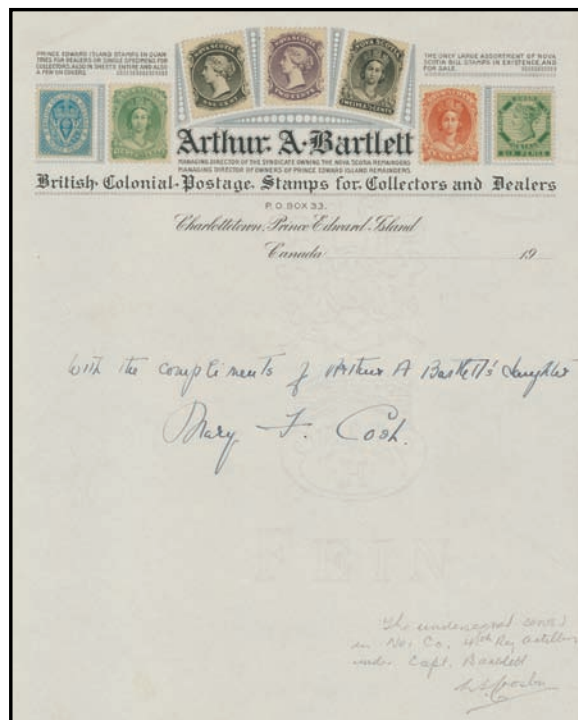 PRINCE EDWARD ISLAND STAMPS IN QUAN
TITIES FOR DEALERS OR SINGLE SPECIMENS FOR
COLLECTORS. ALSO IN SHEETS ENTIRE AND ALSO
A FEW ON COVERS.
THE ONLY LARGE ASSORTMENT OF NOVA
SCOTIA BILL STAMPS IN EXISTENCE, AND
FOR SALE.
NOVA SCOTIA
ONE CENT
NOVA SCOTIA
TWO CENTS
NOVA SCOTIA
SIX PENCE
Arthur. A. Bartlett
MANAGING DIRECTOR OF THE SYNDICATE OWNING THE NOVA SCOTIA REMAINDERS
MANAGING DIRECTOR OF OWNERS OF PRINCE EDWARD ISLAND REMAINDERS
British Colonial Postage Stamps for Collectors and Dealers
P.O. BOX 33.
Charlottetown, Prince Edward Island
Canada 19
With the compliments of Arthur A Bartlett's daughter
Mary F. Cosh.
FEIN
The undersigned served
in No. 1 Co. 4th Reg artillery
under Capt. Bartlett